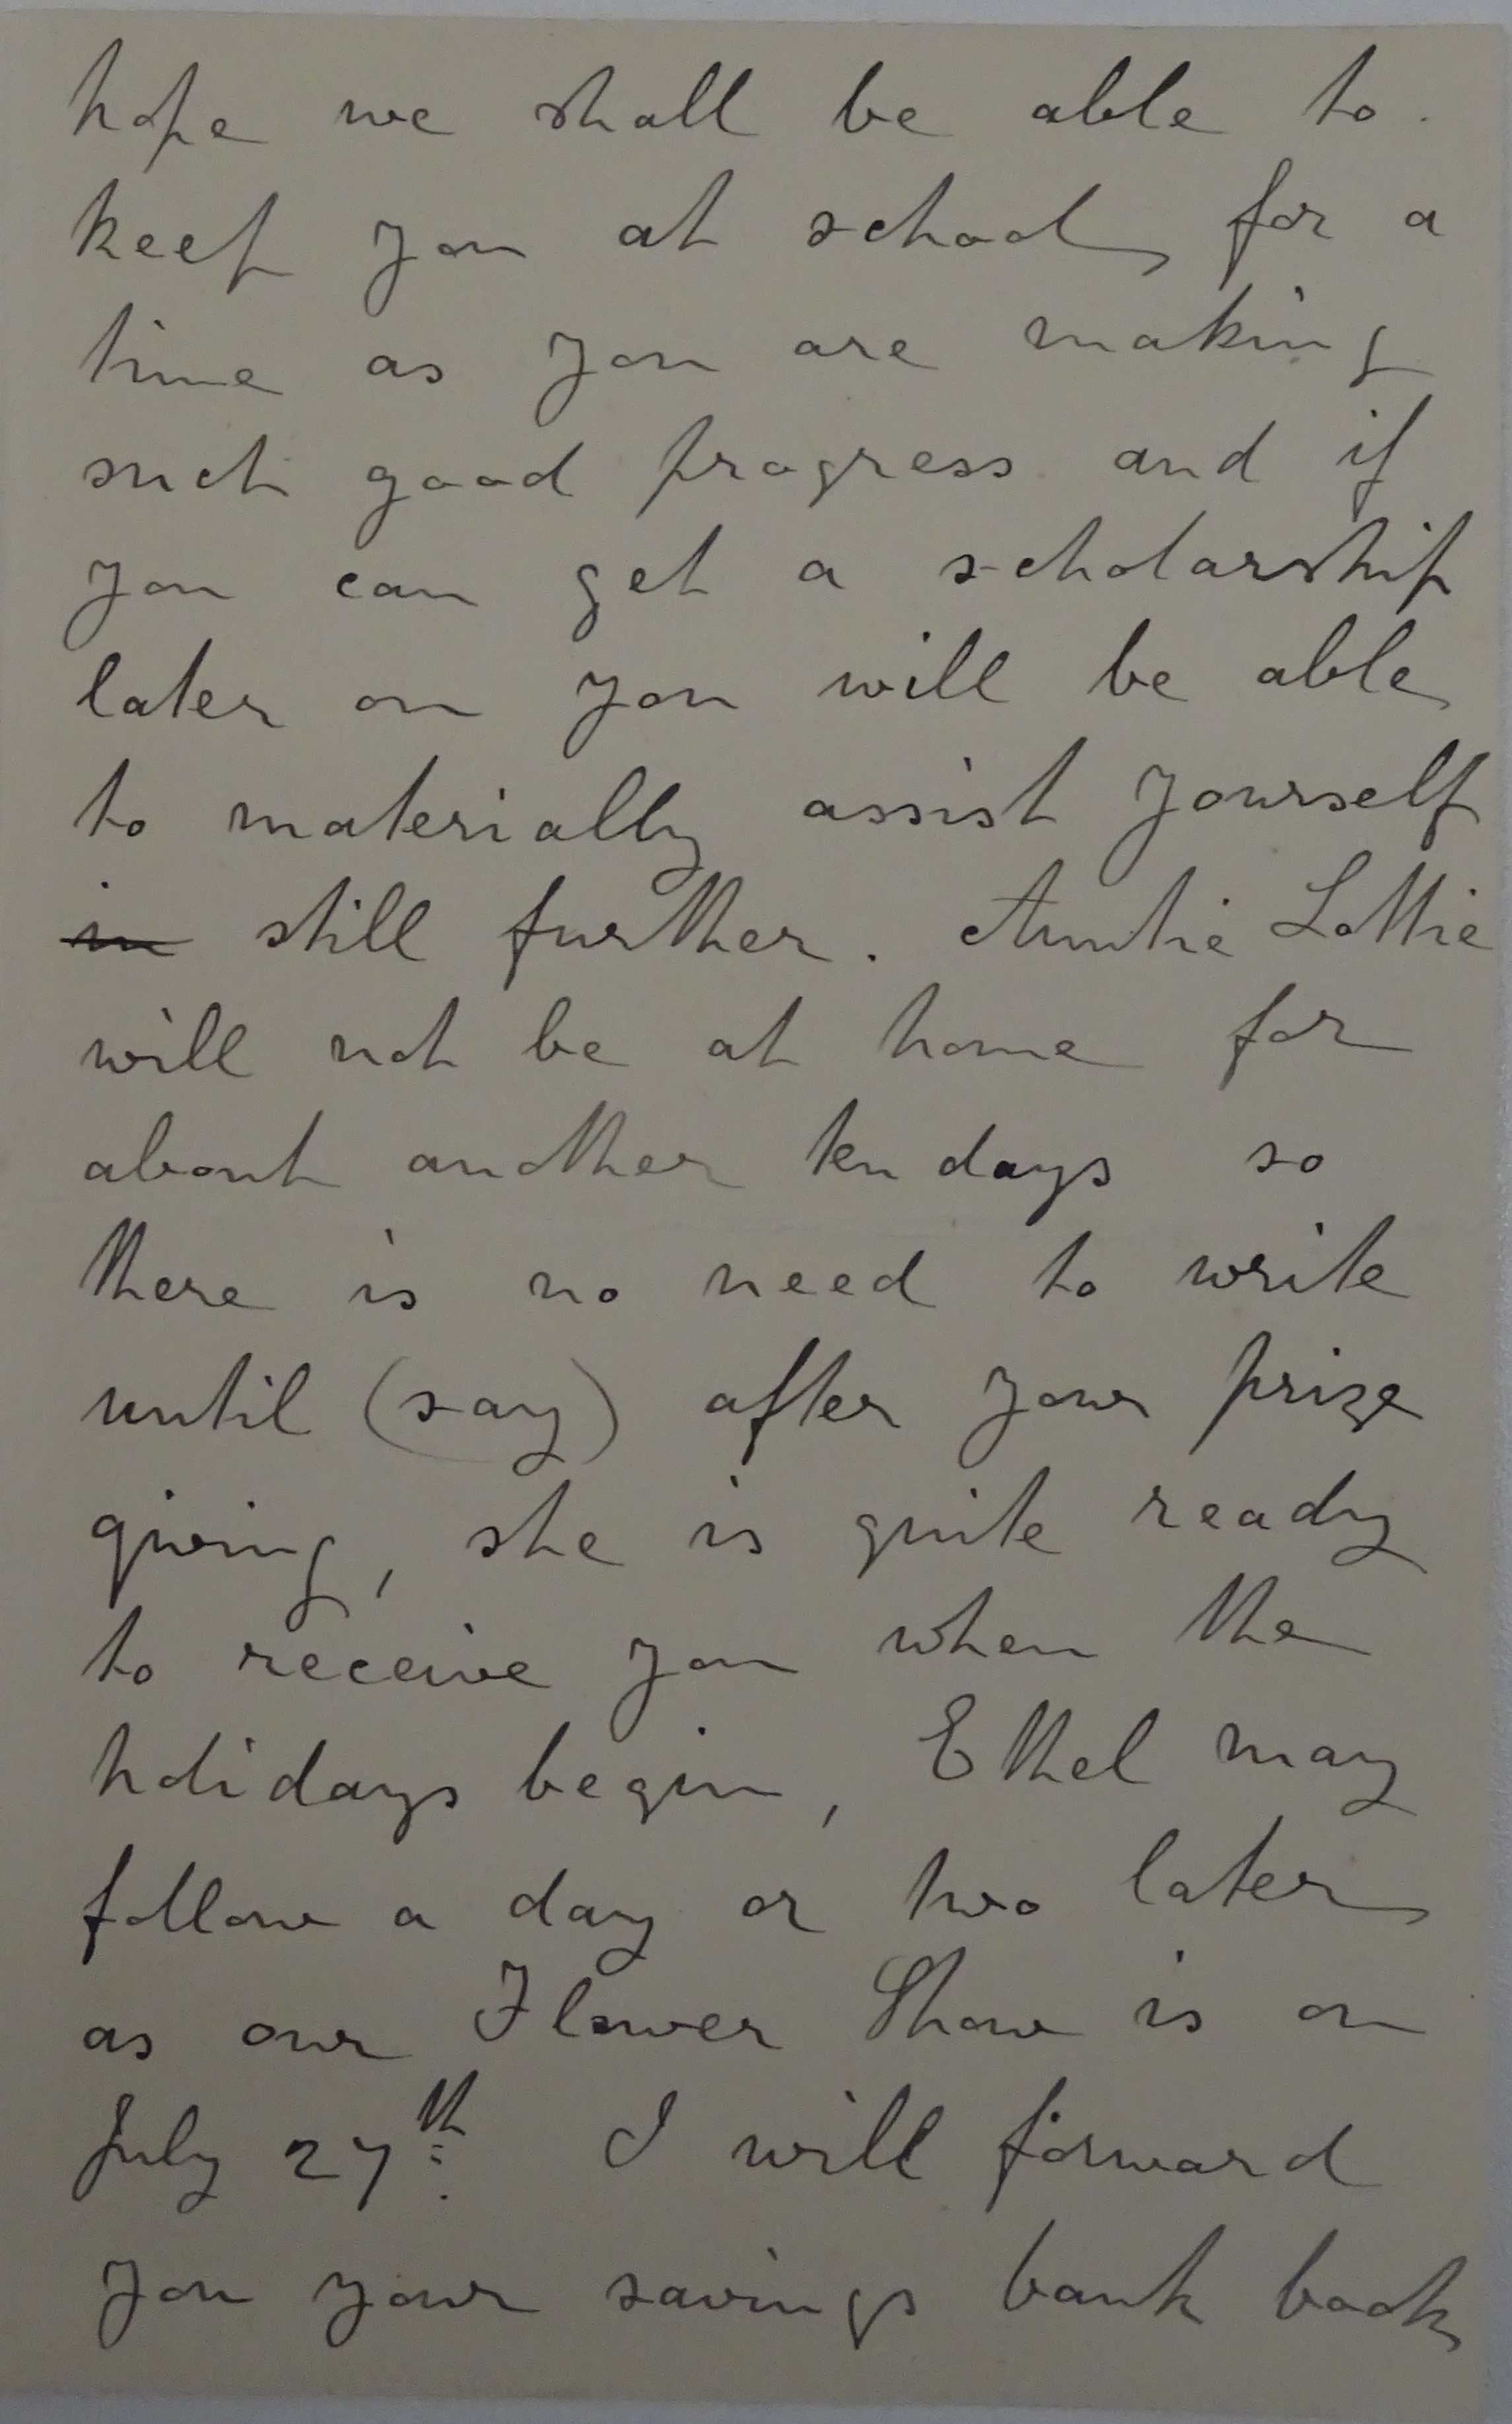 hope we shall be able to
keep you at school for a
time as you are making
such good progress and if
you can get a scholarship
later on you will be able
to materially assist yourself
in still further. Auntie Lottie
will not be at home for
about another ten days so
there is no need to write
until (say) after your prize
giving, she is quite ready
to receive you when the
holidays begin, Ethel may
follow a day or two later
as our Flower Show is on
July 27th. I will forward
you your savings bank book